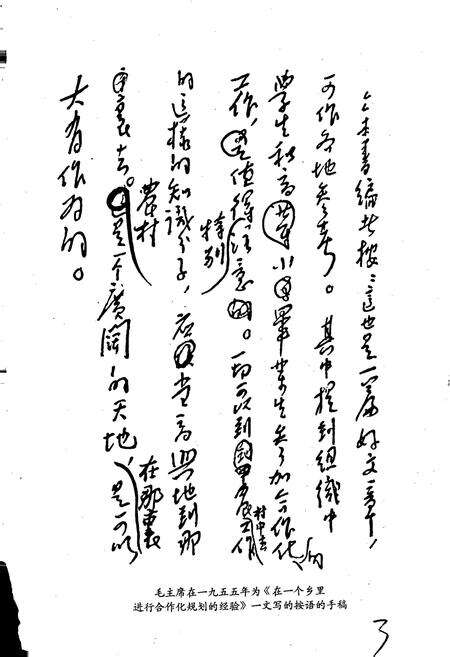 本書編者按：這也是一篇好文章，
可作各地参考。其中提到组織中
學生和高小畢業生参加合作化的
工作，值得特别注意。一切可以到農村中去工作
的這樣的知識分子，应當高興地到那
里去。農村是一个廣闊的天地，在那裏是可以
大有作为的。
毛主席在一九五五年为《在一个乡里
进行合作化规划的经验》一文写的按语的手稿
3